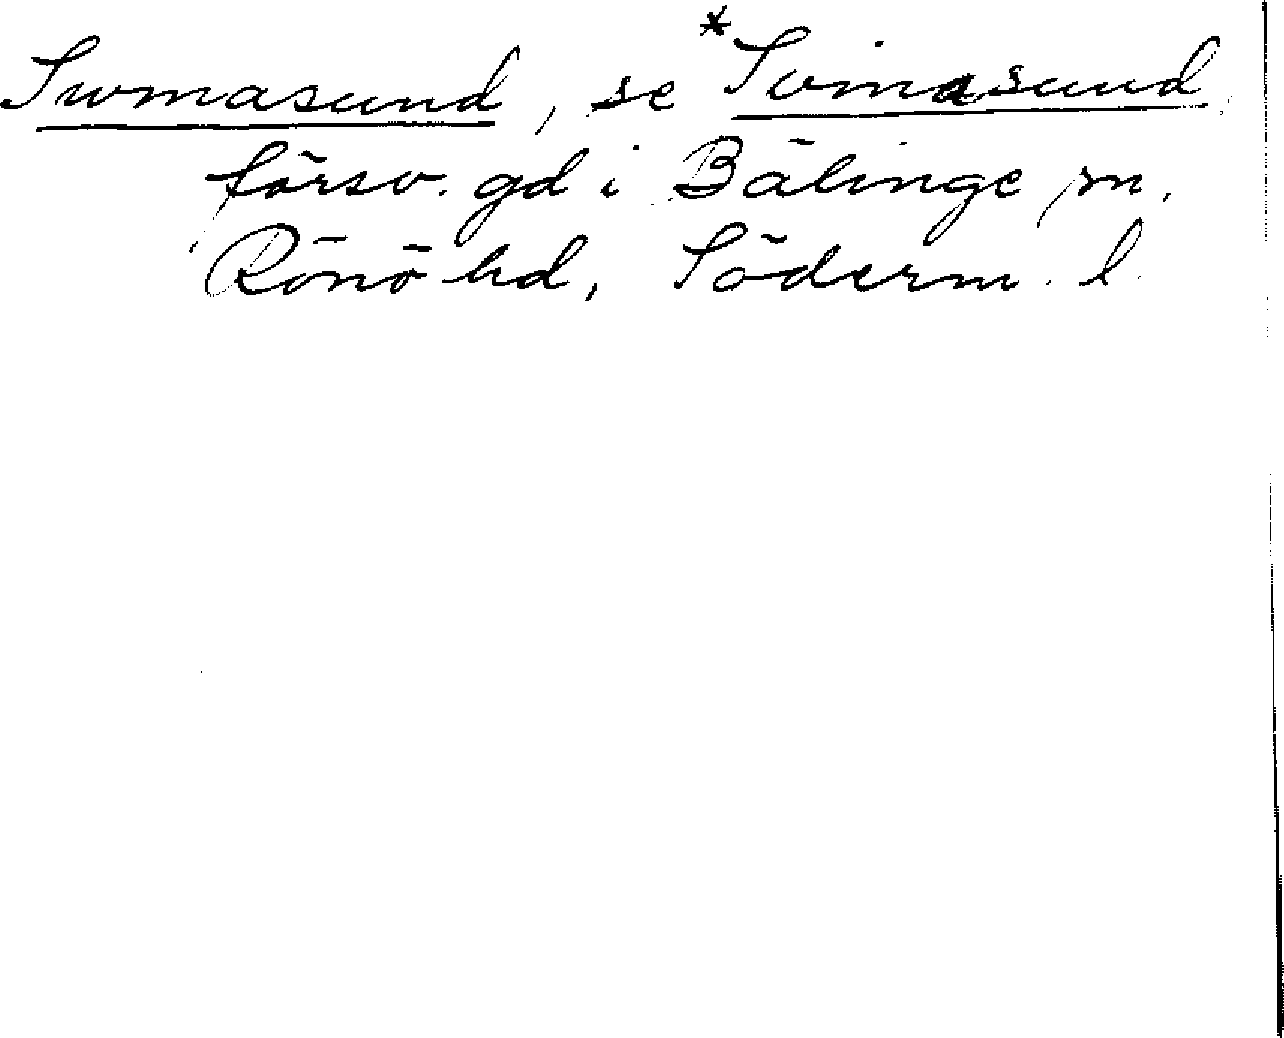 Swmasund, se *Svimasund,
försv. gd i Bälinge sn,
Rönö hd, Söderm. l.